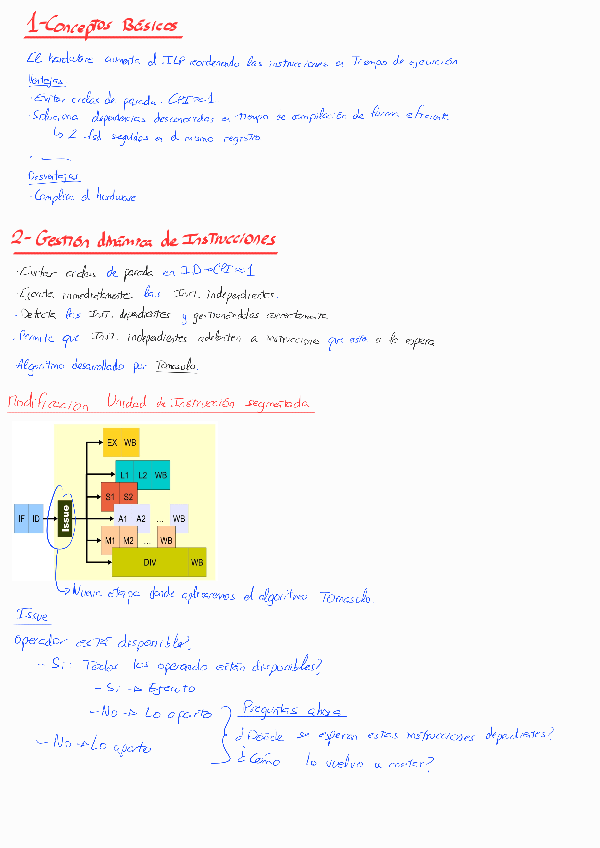 1-Conceptos Básicos
El hardware aumenta el ILP reordenando las instrucciones en Tiempo de ejecución
Ventajas
· Evitar ciclos de parada · CPI≈1
· Soluciona dependencias desconocidas en tiempo de compilación de forma eficiente
↳ 2 fsd seguidas en el mismo registro
Desventajas
· Complica el hardware
2- Gestión dinámica de Instrucciones
· Evitar ciclos de parada en ID → CPI≈1
· Ejecuta inmediatamente las Inst. independientes.
· Detecta las Inst. dependientes y gestionándolas correctamente
· Permite que Inst. independientes adelanten a instrucciones que están a la espera
Algoritmo desarrollado por Tomasulo.
Modificación Unidad de Instrucción segmentada
EX WB
L1 L2 WB
S1 S2
IF ID Issue A1 A2 ... WB
M1 M2 ... WB
DIV WB
↳ Nueva etapa donde aplicaremos el algoritmo Tomasulo.
Issue
Operador está disponible?
- Si · Todos los operando están disponibles?
- Si → Ejecuto
- No → Lo aparto
- No → Lo aparto
Preguntas ahora
¿Dónde se esperan estas instrucciones dependientes?
¿Cómo lo vuelvo a meter?